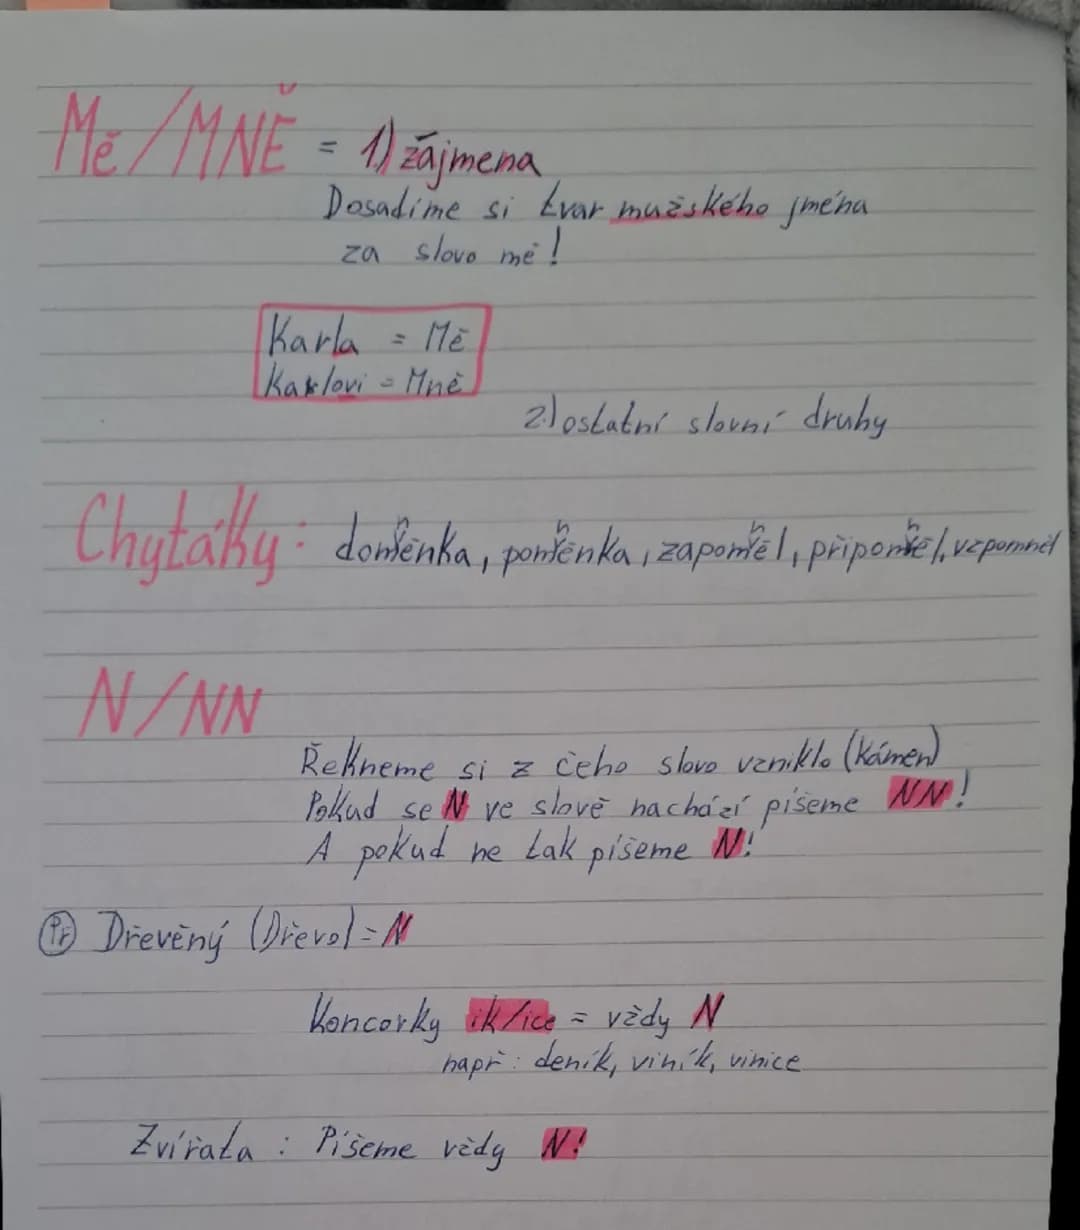 Mě/MNĚ = 1.) zájmena
Dosadíme si tvar mužského jména
za slovo mě!
Karla = Mě
Karlovi = Mně
2.) ostatní slovní druhy
Chytáky: domněnka, pomněnka, zapomněl, připomněl, vzpomněl
N/NN
Řekneme si z čeho slovo vzniklo (kámen)
Pokud se N ve slově nachází píšeme NN!
A pokud ne tak píšeme N!
Př Dřevěný (Dřevo) = N
Koncovky ik/ice = vždy N
např: deník, viník, vinice
Zvířata: Píšeme vždy N!